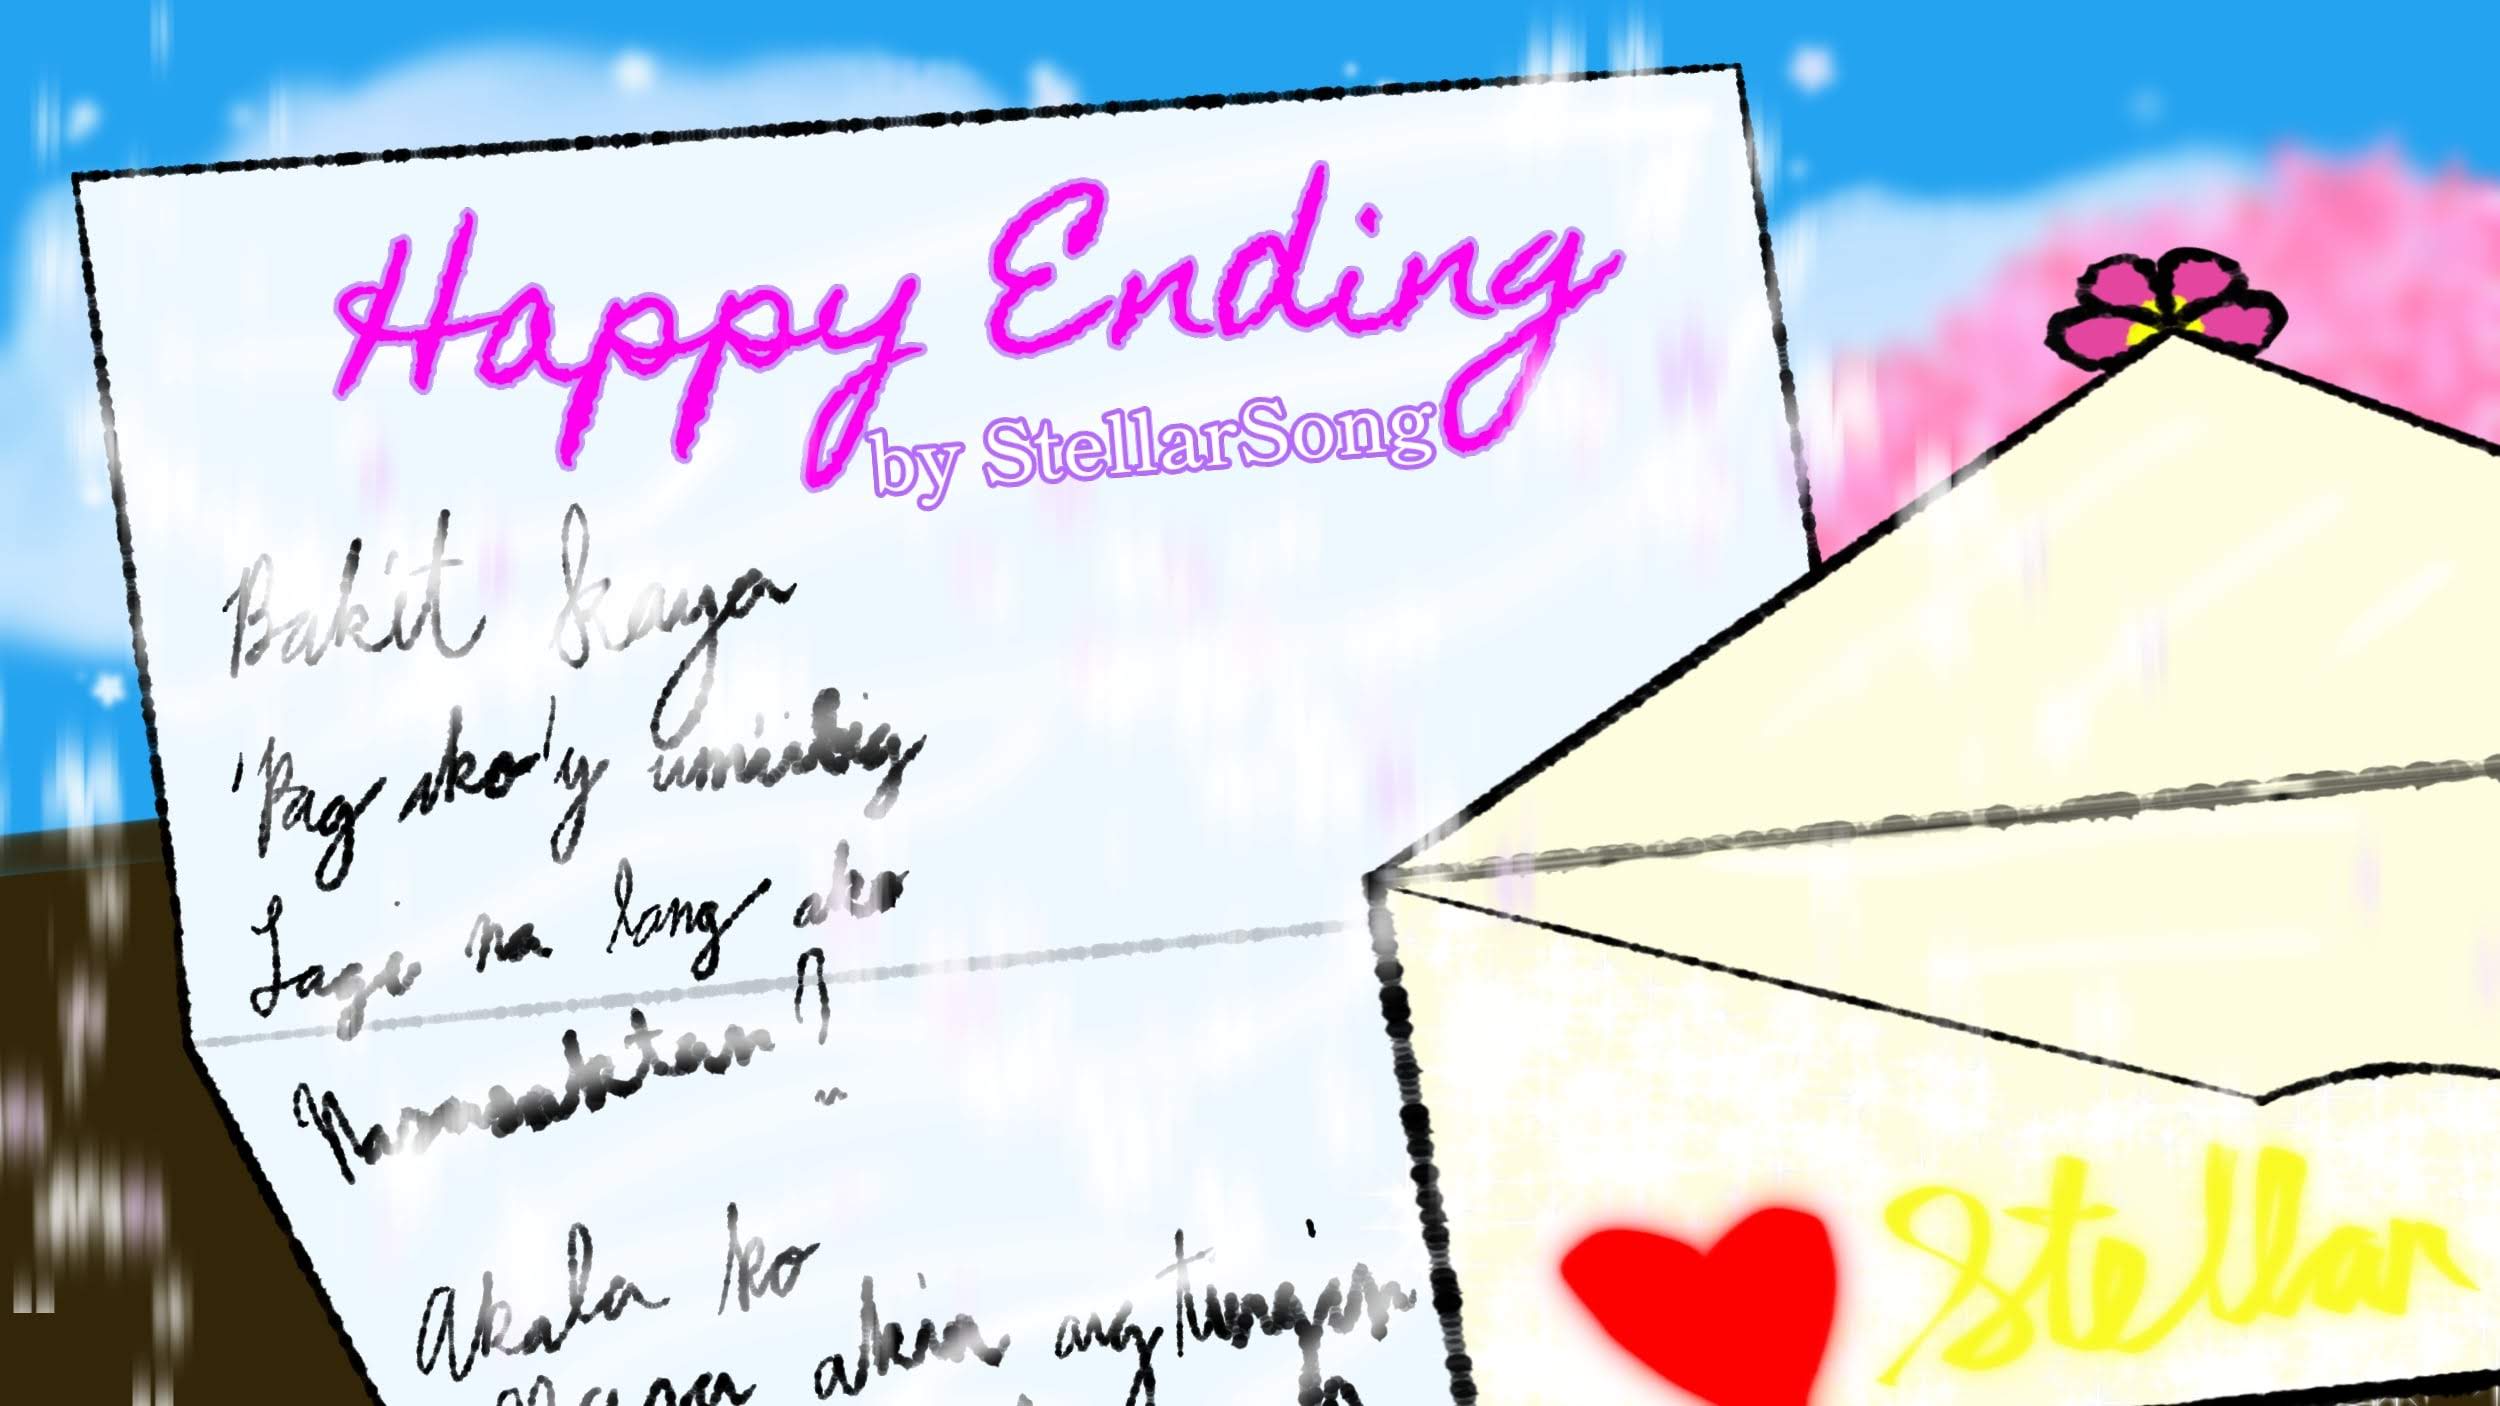 Happy Ending
by StellarSong
Bakit kaya
'Pag ako'y umiibig
Lagi na lang ako
Nasasaktan?
Akala ko
Para akin ang tungin
Stellar